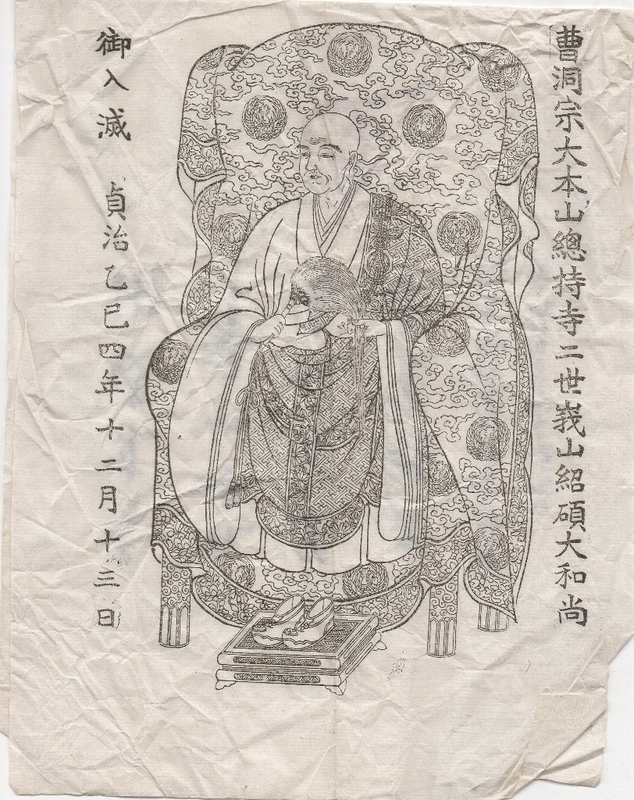 曹洞宗大本山總持寺二世峩山紹碩大和尚
御入滅 貞治乙巳四年十二月十三日